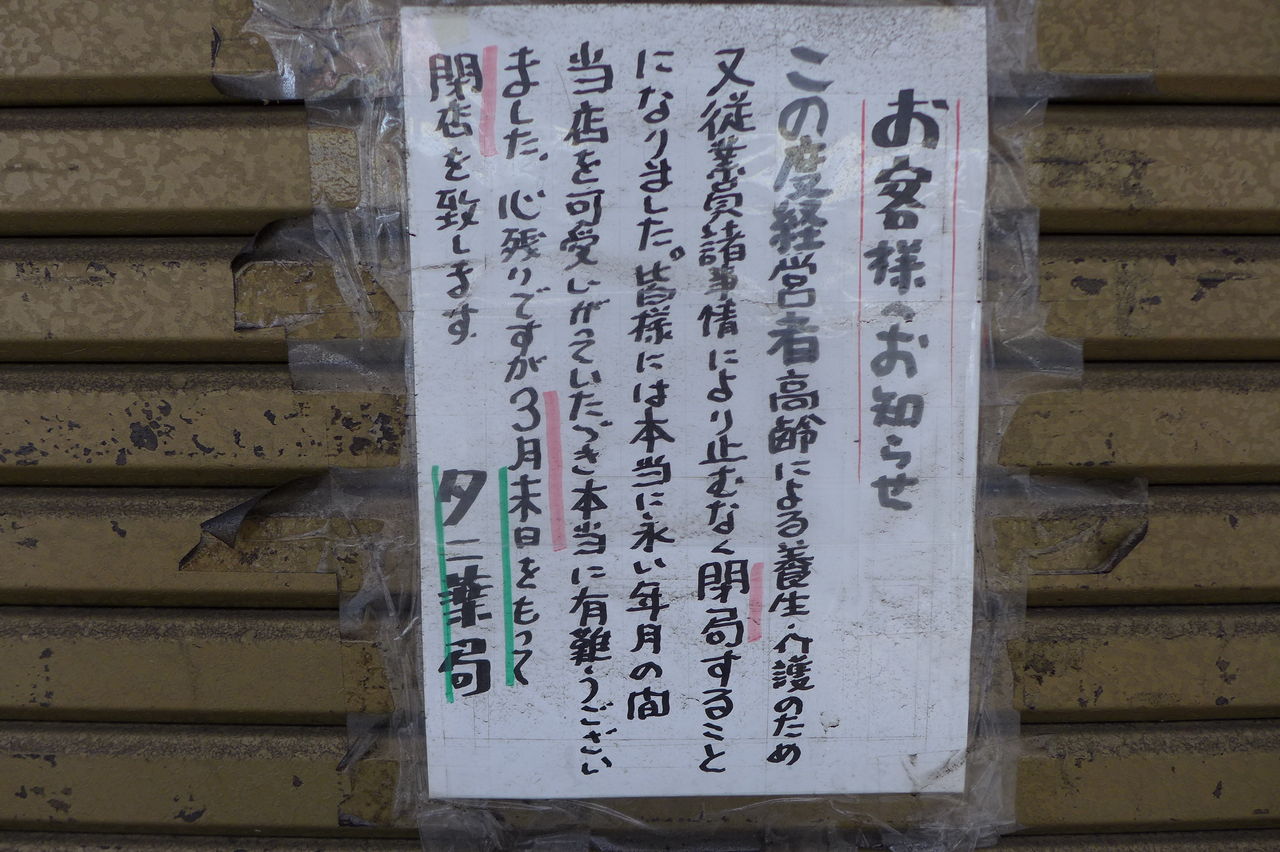 お客様へお知らせ
この度経営者高齢による養生・介護のため
又従業員諸事情により止むなく閉局すること
になりました。皆様には本当に永い年月の間
当店を可愛いがっていただき本当に有難うござい
ました。心残りですが3月末日をもって
閉店を致します。
夕二葉局